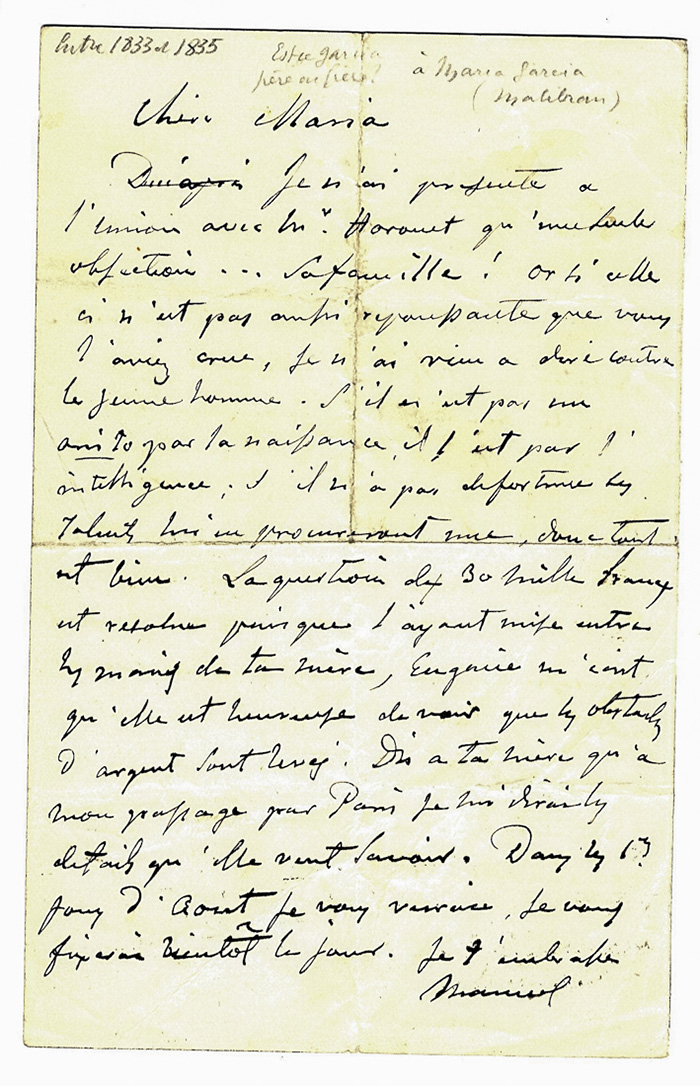 Entre 1833 et 1835
Est-ce Garcia
père ou frère?
à Maria Garcia
(Malibran)
Chère Maria
Je n'ai présenté a
l'union avec Mr. Horouet qu'une seule
objection ... Sa famille ! Or si celle
ci n'est pas aussi repoussante que vous
l'aviez crue, je n'ai rien a dire contre
le jeune homme. S'il n'est pas un
par la naissance, il l'est par l'
intelligence ; s'il n'a pas de fortune les
talents lui en procureront une, donc tout
est bien. La question des 30 mille francs
est resolue puisque l'ayant mise entre
les mains de ta mère, Eugénie m'écrit
qu'elle est heureuse de voir que les obstacles
d'argent sont levés. Dis a ta mère qu'a
mon passage par Paris je lui dirai les
details qu'elle veut savoir. Dans les 1rs
jours d'Août je vous verrai, je vous
fixerai bientôt le jour. Je t'embrasse
Manuel